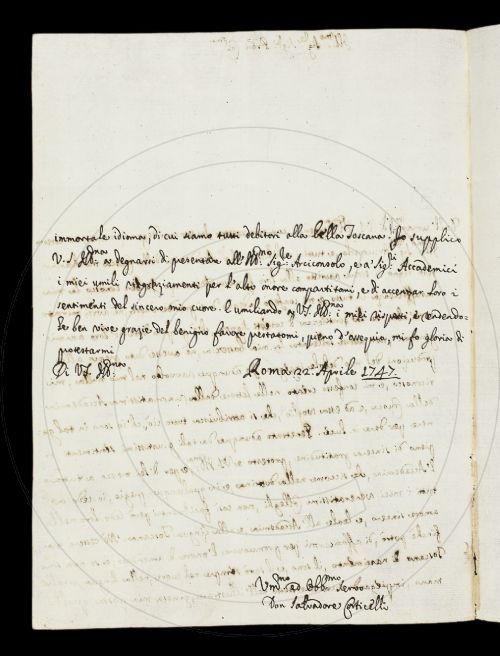 immortale idioma, di cui siamo tutti debitori alla bella Toscana. Io supplico
V. S. Ill.ma a degnarsi di presentare all'Ill.mo Sig.re Arciconsolo, e a' Sig.ri Accademici
i miei umili ringraziamenti per l'alto onore compartitomi, e di accennar loro i
sentimenti del sincero mio cuore. E umiliando a V.S. Ill.ma i miei rispetti, e renden do-
le ben vive grazie del benigno favore prestatomi, pieno d'ossequio, mi fo gloria di
protestarmi
Di V.S. Ill.ma Roma 22. Aprile 1747.
Um.mo ed Obb.mo Servo
Don Salvadore Corticelli